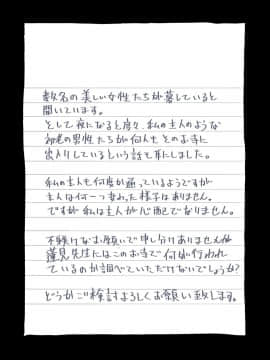 数名の美しい女性たちが暮していると
聞いています。
そして夜になると度々、私の主人のような
初老の男性たちが何人もそのお寺に
出入りしているという話を耳にしました。
私の主人も何度か通っているようですが
主人は何一つ変わった様子はありません。
ですが私は主人が心配でなりません。
不躾けなお願いで申し訳ありませんが
蓮見先生にはこのお寺で何が行われ
ているのか調べていただけないでしょうか?
どうかご検討よろしくお願い致します。